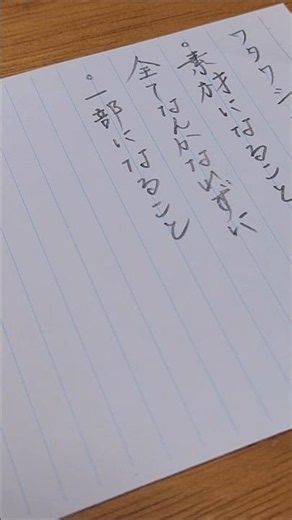 タワシ
。素材になること
全てなんかな ずに
。一部になること